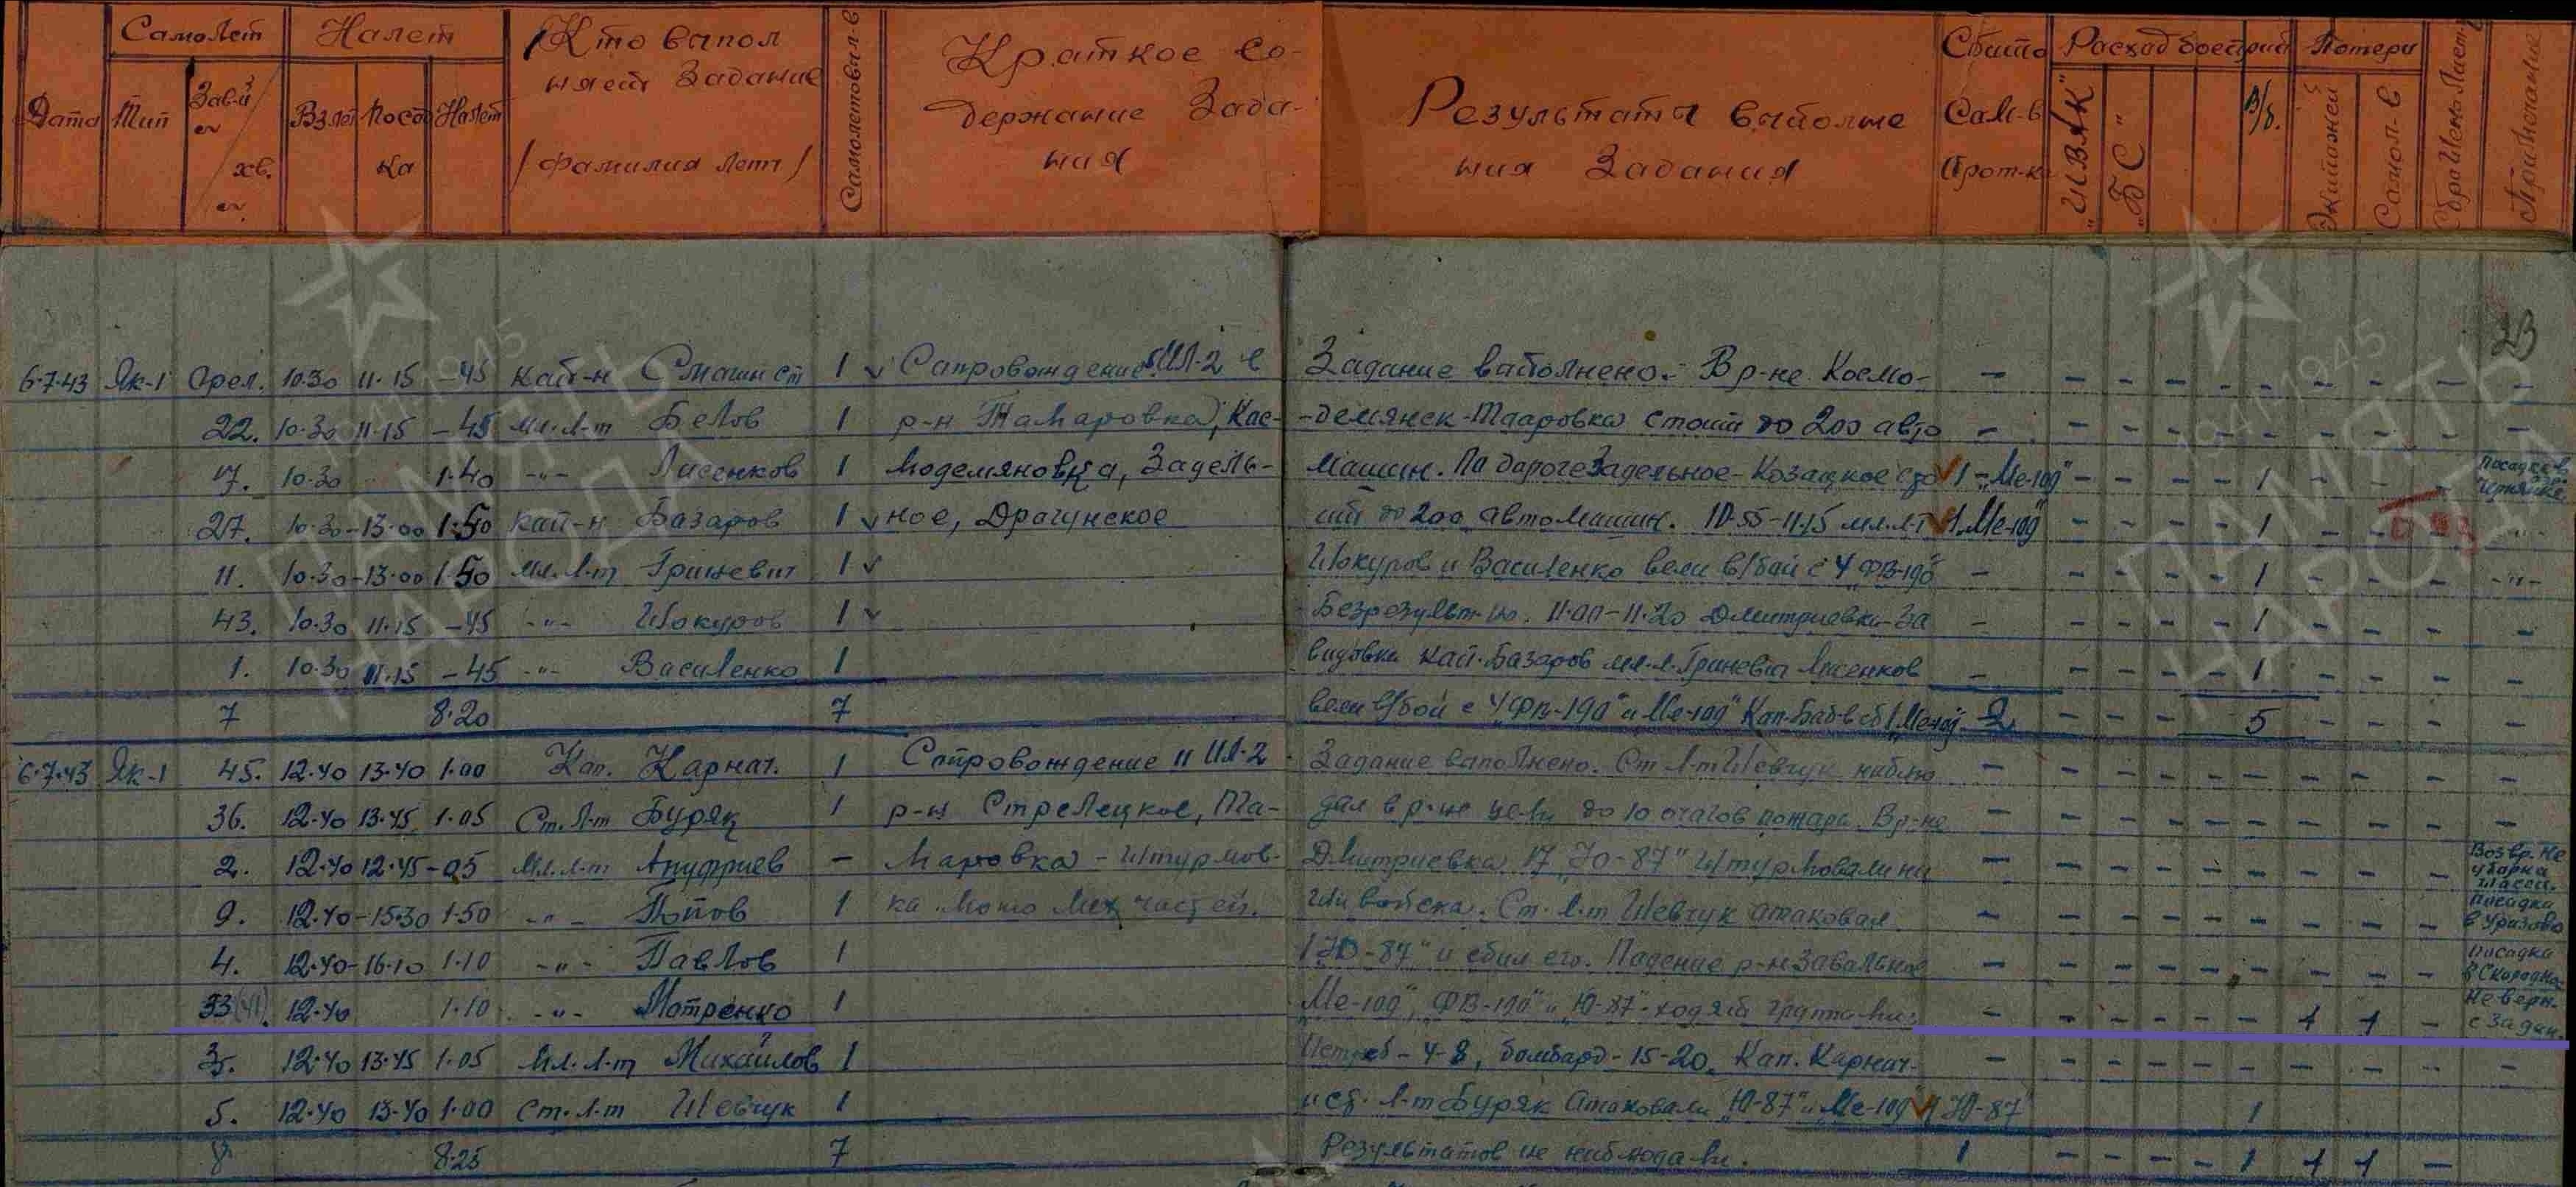 Дата Самолет Налет Кто выпол Самолетовыл-в Краткое со- Результаты выполне Сбито Расход боеприп Потери Примечание
Тип Зав-й няет Задание держание Зада- ния Задания Сам-в "ШВАК" "БС" В/б. Экипажей Самол-в
№ хв. № Взлет Посадка Налет /фамилия летч/ ния Прот-ка
ПАМЯТЬ НАРОДА
1941 1945
23
6.7.43 Як-1 10.30 11.15 -45 Кап-н 1 Сапровождение ИЛ-2 в Задание выполнено. В р-не Космо- - - - - - - - - - -
22. 10.30 11.15 -45 мл.л-т Белов 1 р-н Тамаровка, Кас- -демянск-Тааровка стоит до 200 авто - - - - - - - - - -
7. 10.30 1.40 -"- Лисенков 1 модемяновка, Задель- машин. По дороге Задельное-Козацкое 1-"Ме-109" - - - - 1 - - - Посадка в
27. 10.30-13.00 1.50 кап-н Базаров 1 ное, Драгунское до 200 автомашин. 10.55-11.15 мл.л-т 1.Ме-109" - - - - 1 - -"-
11. 10.30-13.00 1.50 мл.л-т Гриневич 1 Шокуров и Василенко вели в/бой с 4 ФВ-190" - - - - - 1 - - - -"-
43. 10.30 11.15 -45 -"- Шокуров 1 Безрезульт-но. 11.00-11.20 Дмитриевка-За - - - - - 1 - - - -
1. 10.30 11.15 -45 -"- Василенко 1 видовка кап.Базаров мл.л. Гриневич Лисенков - - - - - 1 - - - -
7 8.20 7 вели в/бой с 4 "ФВ-190" и Ме-109" Кап. сб 1 "Ме-109" 2 - - - - 5 - - - -
6.7.43 Як-1 45. 12.40 13.40 1.00 Кап. Карнач. 1 Сопровождение 11 ИЛ-2 Задание выполнено. Ст л-т Шевчук наблю - - - - - - - - - -
36. 12.40 13.45 1.05 Ст.л-т Буряк 1 р-н Стрелецкое, Та- дал в р-не цели до 10 очагов пожара. В р-не - - - - - - - - - -
2. 12.40 12.45 -05 мл.л-т Ануфриев - маровка - штурмов- Дмитриевка 17 "Ю-87" штурмовали на - - - - - - - - - Возвр. Не убарка шасси.
9. 12.40-15.30 1.50 -"- Попов 1 ка мото мех частей. ши войска. Ст.л-т Шевчук атаковал - - - - - - - - - посадка в Уразово
4. 12.40-16.10 1.10 -"- Павлов 1 1 "Ю-87" и сбил его. Падение р-н - - - - - - - - - посадка
33(41). 12.40 1.10 -"- Мотренко 1 "Ме-109", "ФВ-190" и "Ю-87" ходят группами - - - - - - 1 1 - Не верн. с задан.
35. 12.40 13.45 1.05 Мл.л-т Михайлов 1 Истреб-4-8, бомбард-15-20. Кап. Карнач. - - - - - - - - - -
5. 12.40 13.40 1.00 Ст.л-т Шевчук 1 и ст. л-т Буряк атаковали "Ю-87" и "Ме-109" 1 Ю-87" 1
8 8.25 7 Результатов не наблюдали. 1 - - - - 1 1 1 -